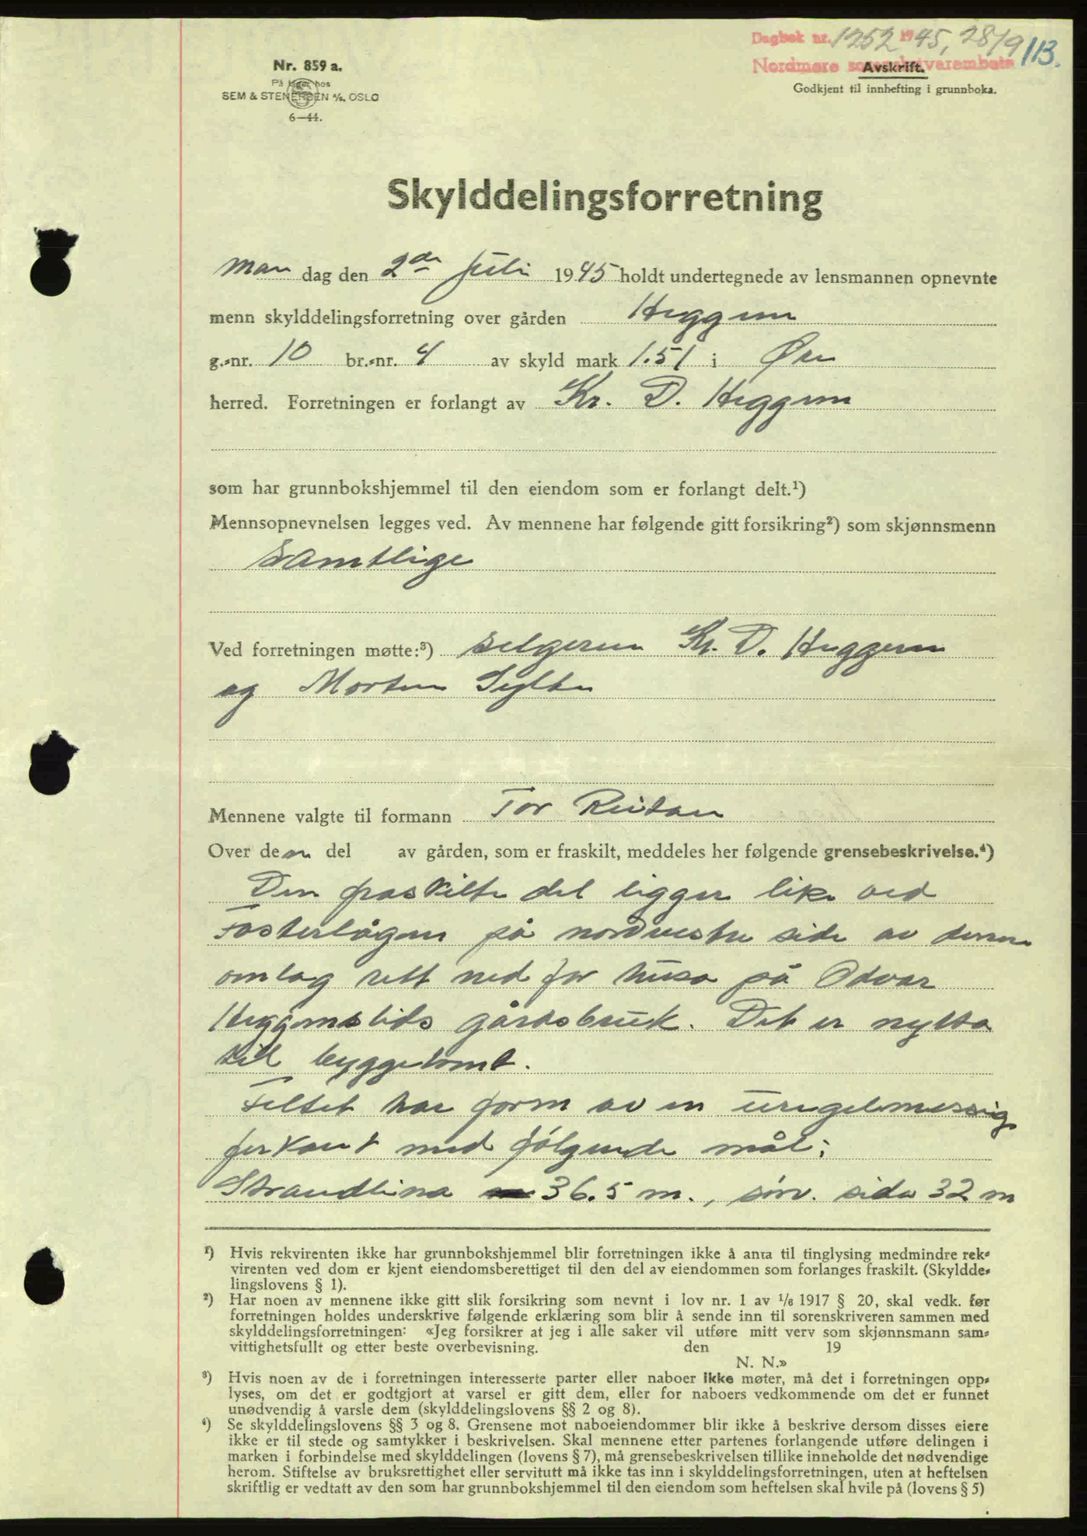 Dagbok nr. 1252 1945, 28/9 113.
Nordmøre sorenskrivarembete
Nr. 859 a.
På lager hos
SEM & STENERSEN A/S, OSLO
6—44.
Avskrift.
Godkjent til innhefting i grunnboka.
Skylddelingsforretning
Man dag den 2de Juli 1945 holdt undertegnede av lensmannen opnevnte
menn skylddelingsforretning over gården Heggem
g.-nr. 10 br.-nr. 4 av skyld mark 1.51 i Øre
herred. Forretningen er forlangt av Kr. D. Heggem
som har grunnbokshjemmel til den eiendom som er forlangt delt.¹)
Mennsopnevnelsen legges ved. Av mennene har følgende gitt forsikring²) som skjønnsmenn
Samtlige
Ved forretningen møtte:³) selgeren Kr. D. Heggem
og Morten Sylte
Mennene valgte til formann Tor Reitan
Over den del av gården, som er fraskilt, meddeles her følgende grensebeskrivelse.⁴)
Den fraskilte del ligger like ved
Fosterlågen på nordvestre side av denne
omlag rett ned for husa på Odvar
Heggemslids gårdsbruk. Det er nytta
til byggetomt.
Feltet har form av en uregelmessig
firkant med følgende mål:
Strandlina 36.5 m., sørv. side 32 m
¹) Hvis rekvirenten ikke har grunnbokshjemmel blir forretningen ikke å anta til tinglysing medmindre rek-
virenten ved dom er kjent eiendomsberettiget til den del av eiendommen som forlanges fraskilt. (Skyldde-
lingslovens § 1).
²) Har noen av mennene ikke gitt slik forsikring som nevnt i lov nr. 1 av 1/6 1917 § 20, skal vedk. før
forretningen holdes underskrive følgende erklæring som blir å sende inn til sorenskriveren sammen med
skylddelingsforretningen: «Jeg forsikrer at jeg i alle saker vil utføre mitt verv som skjønnsmann sam-
vittighetsfullt og etter beste overbevisning. den 19
N. N.»
³) Hvis noen av de i forretningen interesserte parter eller naboer ikke møter, må det i forretningen opp-
lyses, om det er godtgjort at varsel er gitt dem, eller for naboers vedkommende om det er funnet
unødvendig å varsle dem (skylddelingslovens §§ 2 og 8).
⁴) Se skylddelingslovens §§ 3 og 8. Grensene mot naboeiendommer blir ikke å beskrive dersom disses eiere
ikke er til stede og samtykker i beskrivelsen. Skal mennene etter partenes forlangende utføre delingen i
marken i forbindelse med skylddelingen (lovens § 7), må grensebeskrivelsen tillike inneholde det nødvendige
herom. Stiftelse av bruksrettighet eller servitutt må ikke tas inn i skylddelingsforretningen, uten at heftelsen
skriftlig er vedtatt av den som har grunnbokshjemmel til den eiendom som heftelsen skal hvile på (lovens § 5)